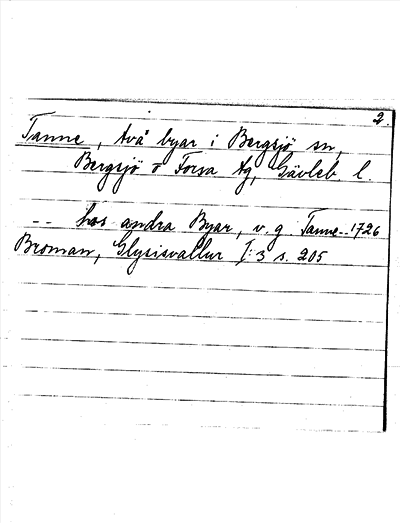 2.
Tanne, två byar i Bergsjö sn,
Bergsjö o Forsa tg, Gävleb. l.
-- hos andra Byar, v.g. Tanne -- 1726
Broman, Glysisvallur I:3 s. 205